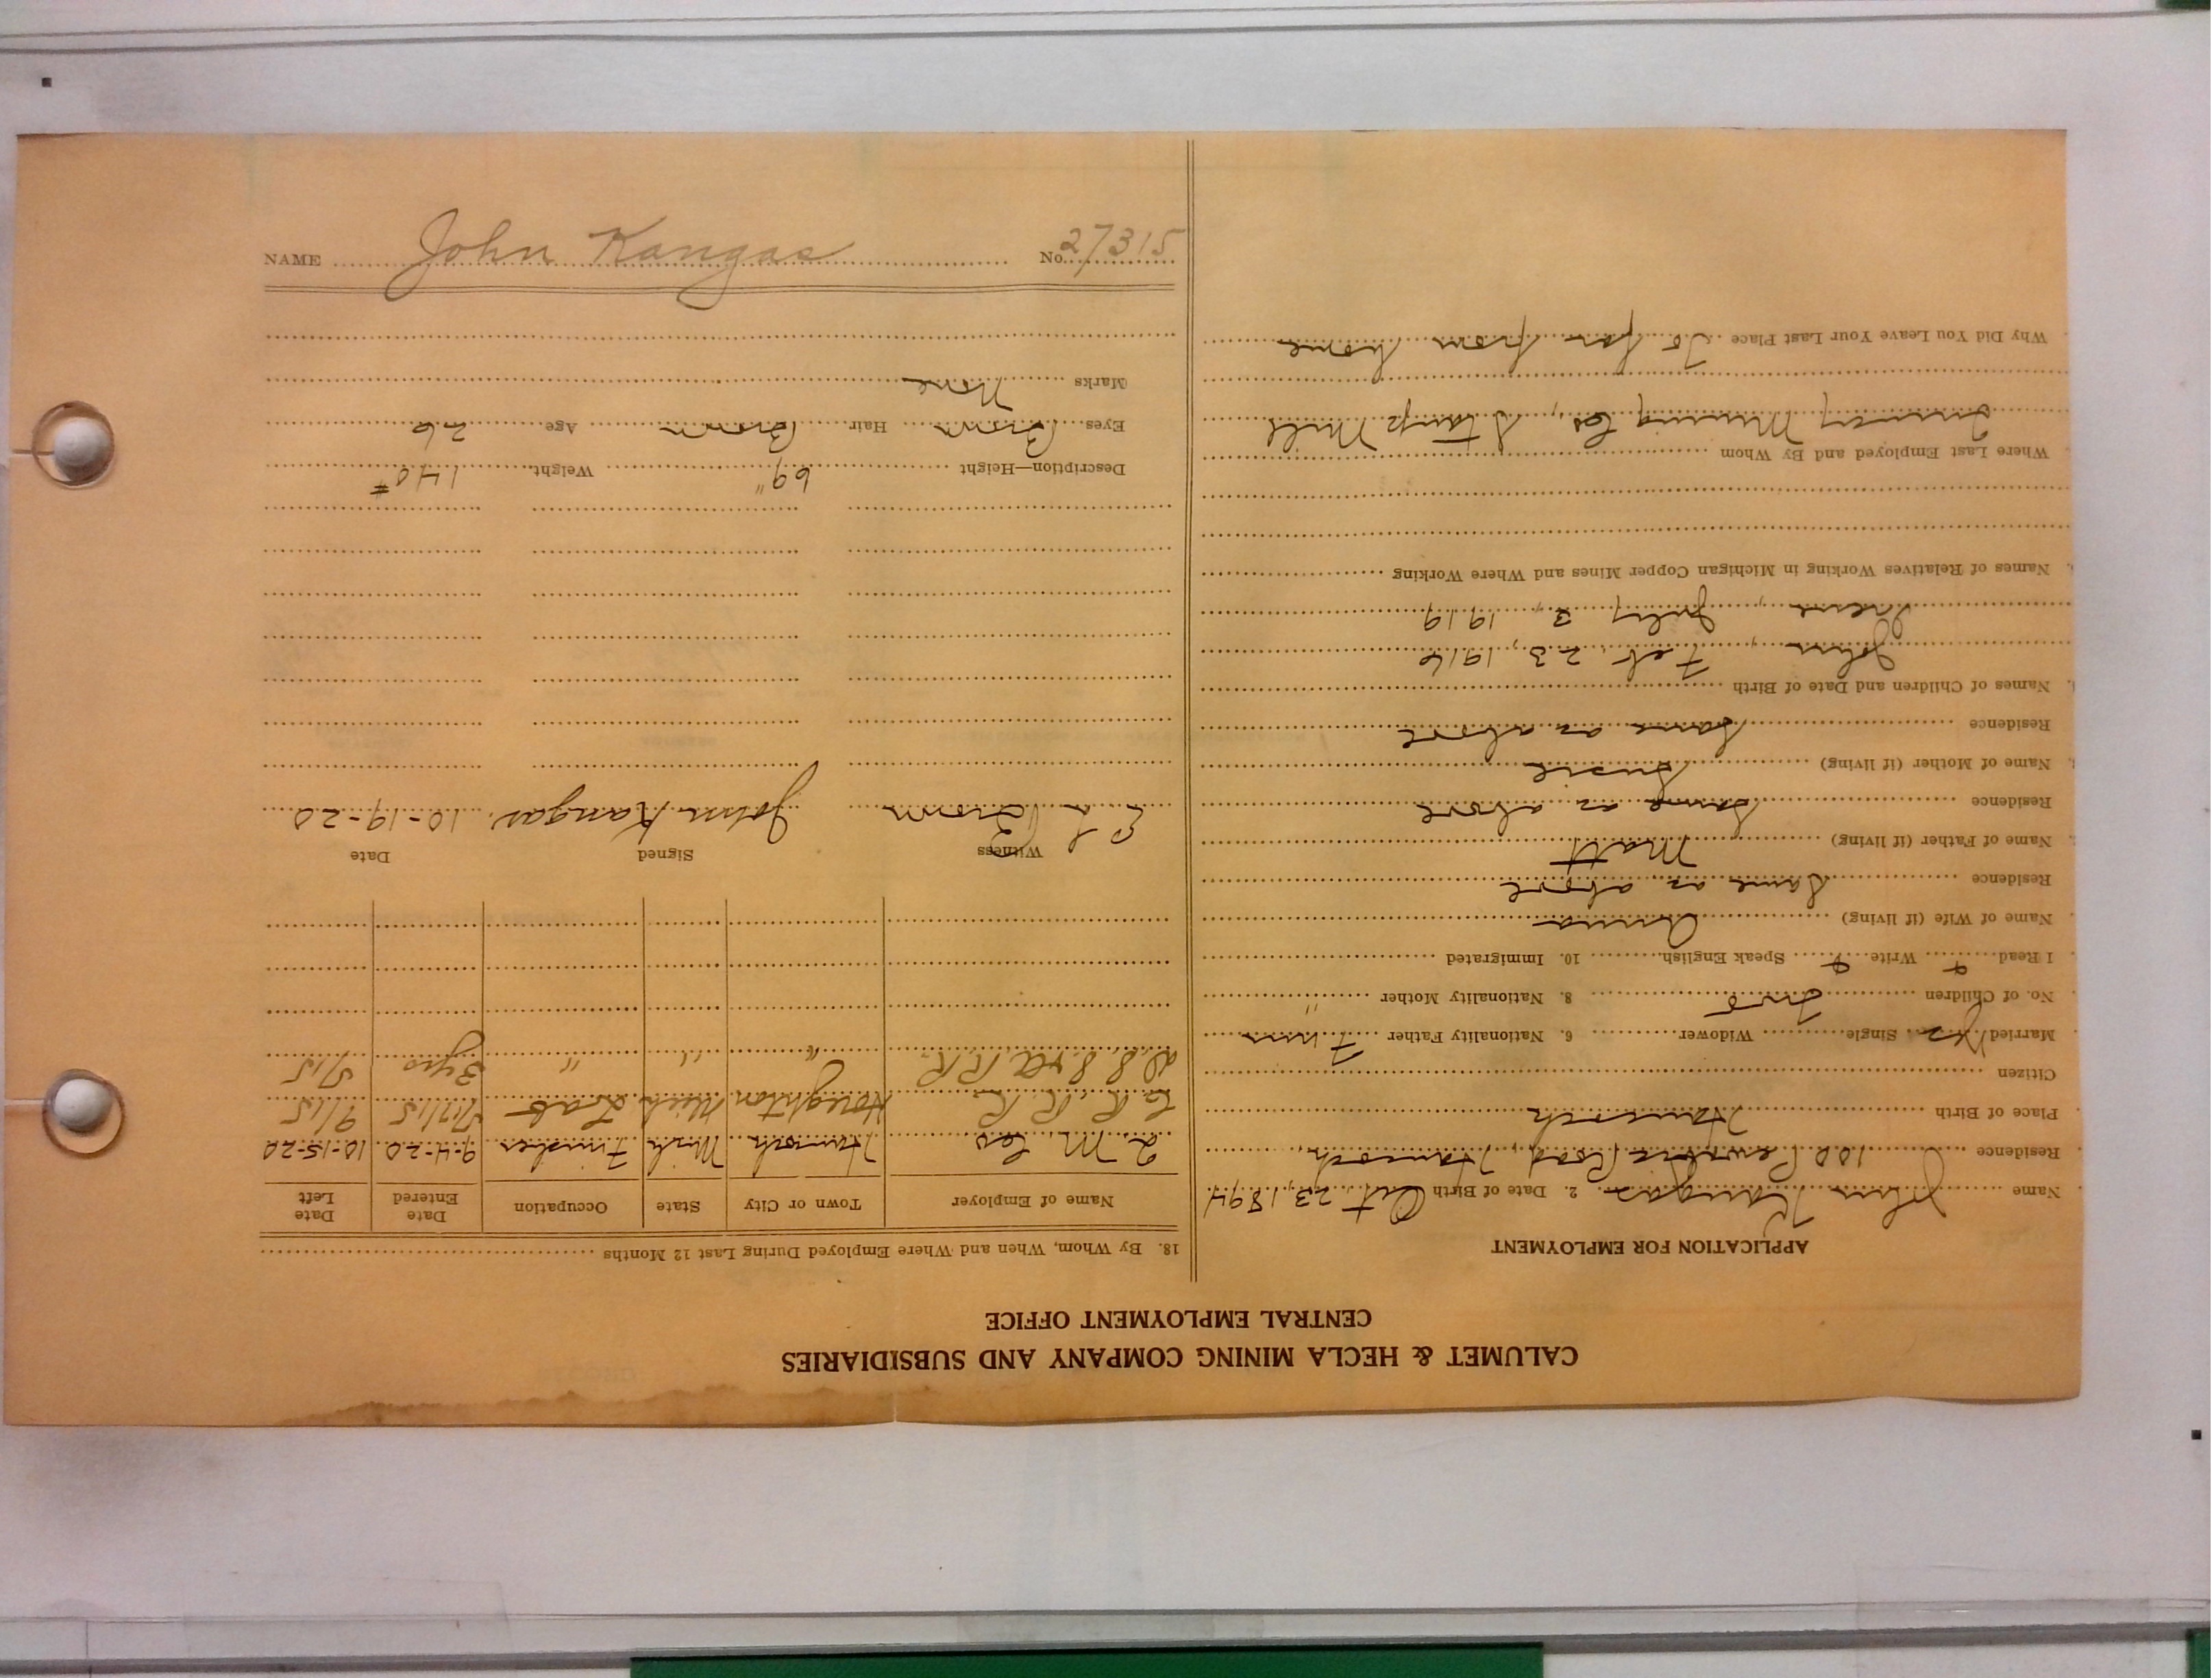 CALUMET & HECLA MINING COMPANY AND SUBSIDIARIES
CENTRAL EMPLOYMENT OFFICE
APPLICATION FOR EMPLOYMENT
Name John Kangas 2. Date of Birth Oct. 23, 1894
Residence 100 Pewabic Road, Hancock,
Place of Birth Hancock
Citizen
Married Yes Single Widower 6. Nationality Father Finn
No. of Children Two 8. Nationality Mother "
I Read Write Speak English 10. Immigrated
Name of Wife (if living) Anna
Residence Same as above
Name of Father (if living) Matt
Residence Same as above
Name of Mother (if living) Susie
Residence Same as above
Names of Children and Date of Birth
John, Feb. 23, 1916
Irene, July 3, 1919
Names of Relatives Working in Michigan Copper Mines and Where Working
Where Last Employed and By Whom
Quincy Mining Co., Stamp Mill
Why Did You Leave Your Last Place To far from home
18. By Whom, When and Where Employed During Last 12 Months
Name of Employer Town or City State Occupation Date Entered Date Left
Q. M. Co. Hancock Mich 9-4-20 10-15-20
C. R. R. R. Houghton Mich Lab 9/15
D. S. S. & A. R. R. " " " 3 yrs 5/15
Witness Signed Date
E L Brown John Kangas 10-19-20
Description—Height 69" Weight 140#
Eyes Brown Hair Brown Age 26
Marks None
NAME John Kangas No. 27315